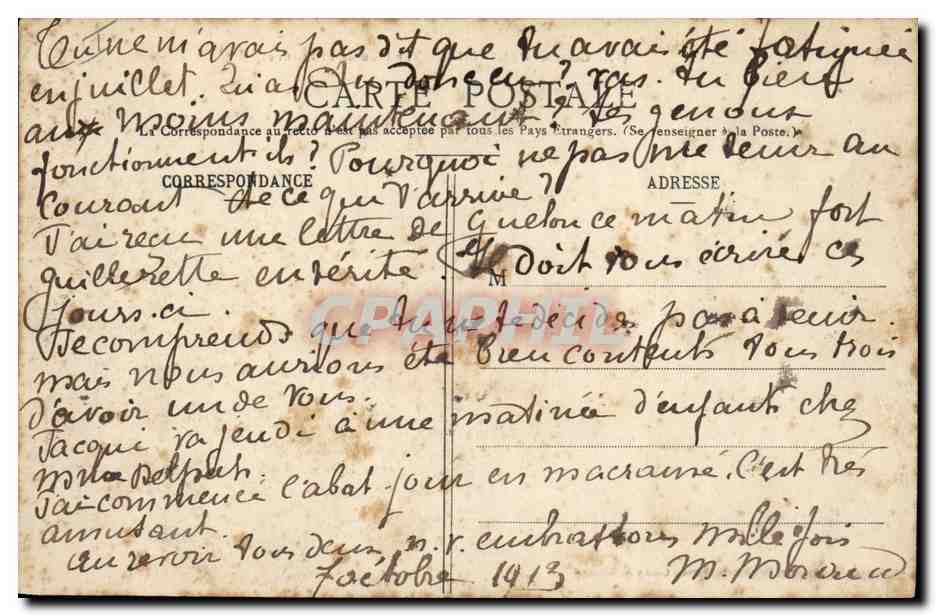 Tu ne m'avais pas dit que tu avais été fatiguée
en juillet. Qu'as tu donc eu? vas-tu bien
au moins maintenant? Tes genoux
CARTE POSTALE
La Correspondance au recto n'est pas acceptée par tous les Pays Etrangers. (Se renseigner à la Poste.)
fonctionnent ils? Pourquoi ne pas me tenir au
CORRESPONDANCE
ADRESSE
courant de ce qui t'arrive?
J'ai reçu une lettre de ce matin fort
guillerette en vérité. Il doit vous écrire ces
M
jours-ci.
CPAPHIL
Je comprends que tu ne te décides pas à venir.
mais nous aurions été bien contents tous trois
d'avoir un de vous.
Jacqui va jeudi à une matinée d'enfants chez
Mme
J'ai commencé l'abat-jour en macramé. C'est très
amusant.
au revoir tous deux, n. v. embrassons mille fois
7 octobre 1913 M.